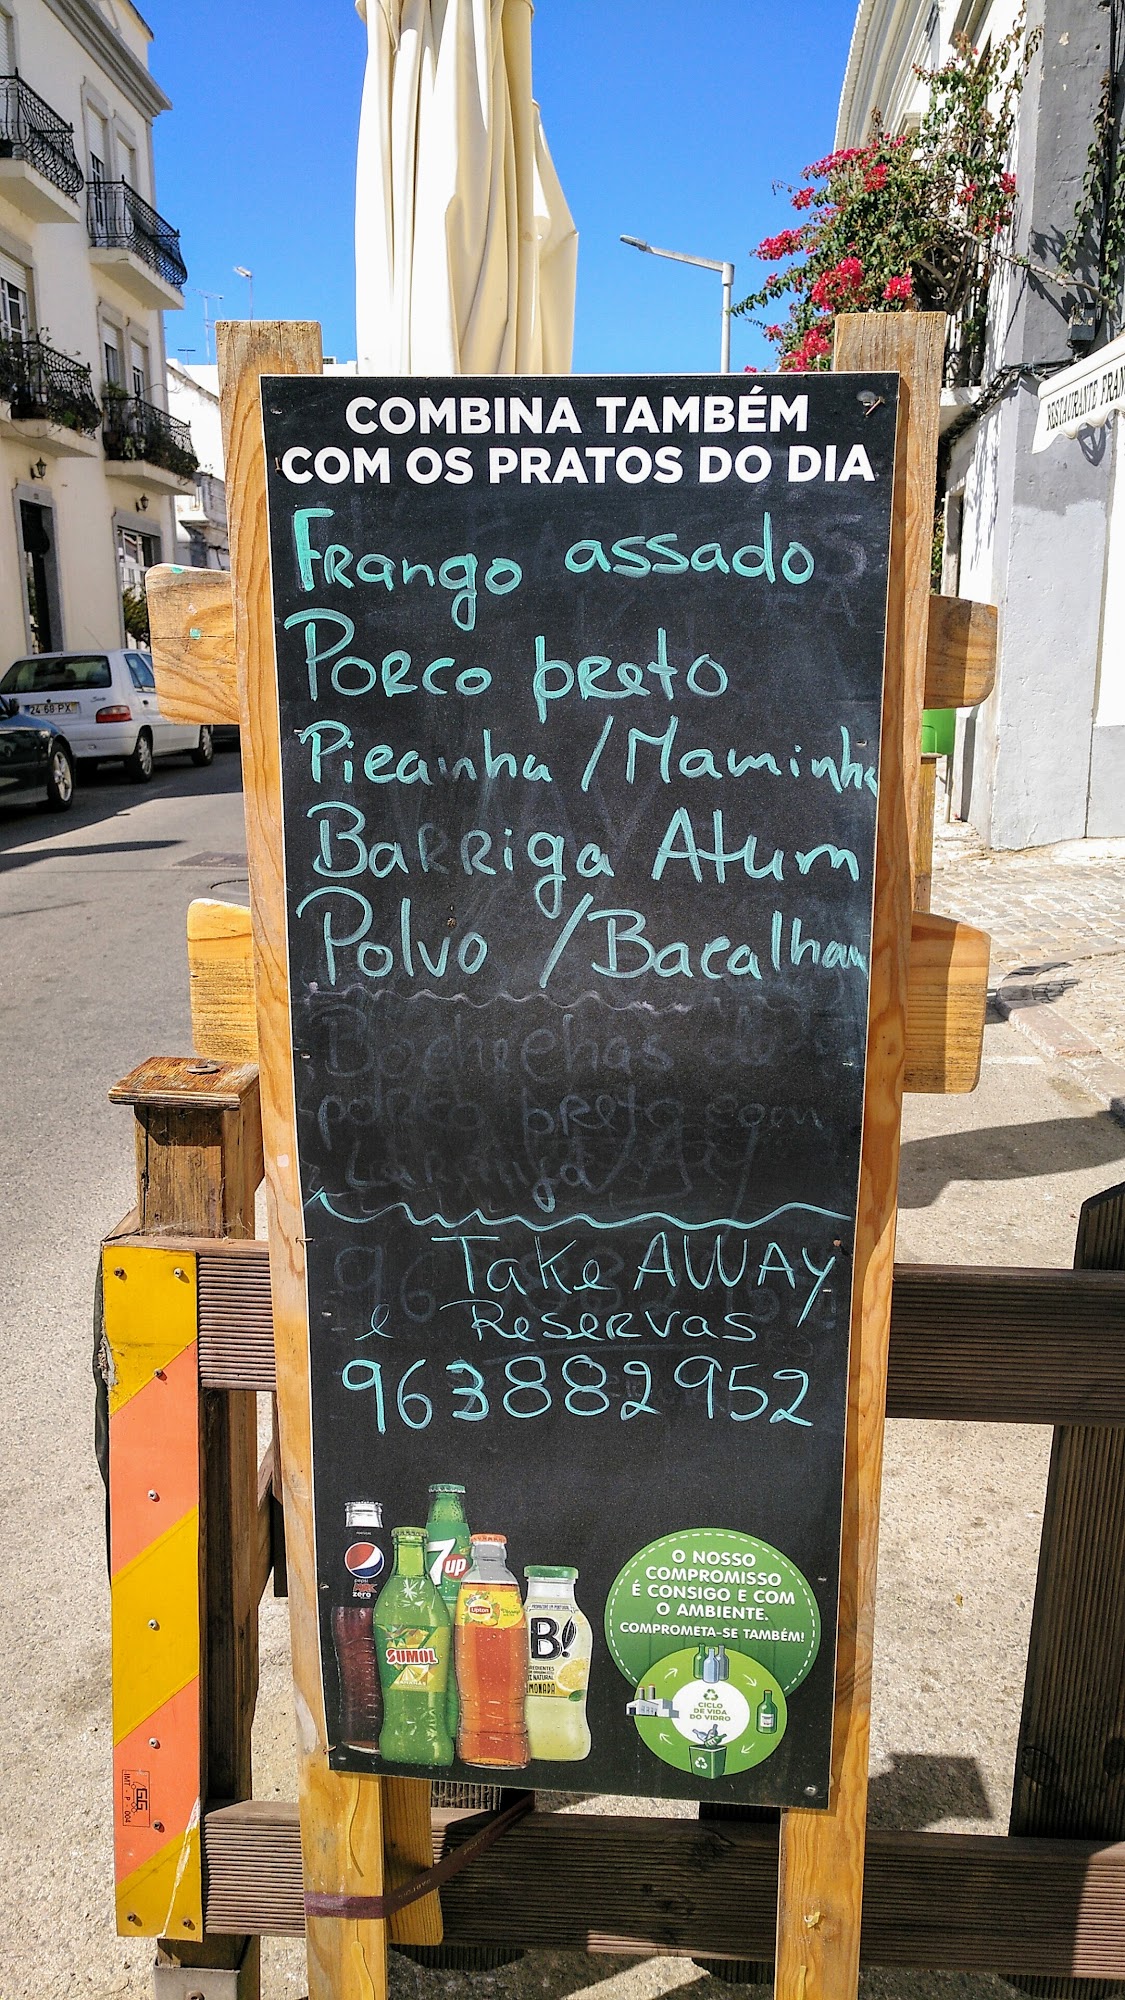 COMBINA TAMBÉM
COM OS PRATOS DO DIA
Frango assado
Porco preto
Picanha / Maminha
Barriga Atum
Polvo / Bacalhau
Bochechas de
porco preto com
Laranja
Take AWAY
e Reservas
963882952
pepsi
zero
7up
SUMOL
Lipton
B!
O NOSSO
COMPROMISSO
É CONSIGO E COM
O AMBIENTE.
COMPROMETA-SE TAMBÉM!
CICLO
DE VIDA
DO VIDRO
RESTAURANTE FRAN
24 68 PX
IMT - P - 004